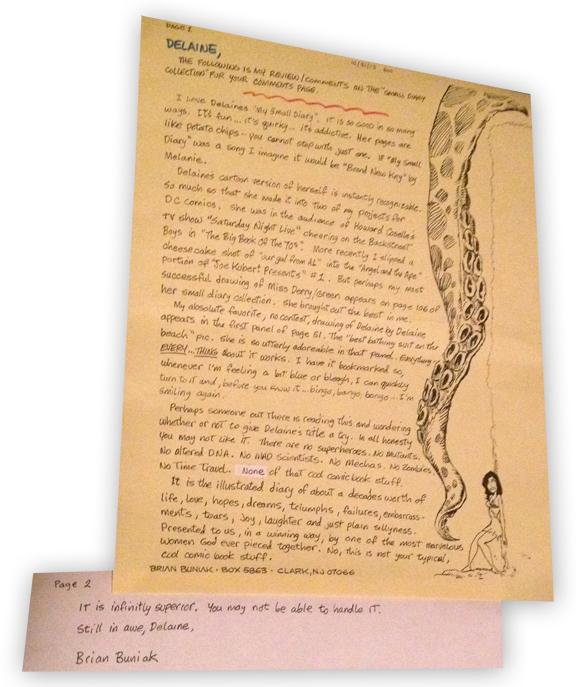 PAGE 1
DELAINE,
THE FOLLOWING IS MY REVIEW/COMMENTS ON THE "SMALL DIARY
COLLECTION" FOR YOUR COMMENTS PAGE.
I Love Delaines "My Small Diary". IT is so good in so many
ways. It's fun... it's quirky... it's addictive. Her pages are
like potato chips... you cannot stop with just one. If "My Small
Diary" was a song I imagine it would be "Brand New Key" by
Melanie.
Delaine's cartoon version of herself is instantly recognizable.
So much so that she made it into two of my projects for
DC comics. She was in the audience of Howard Coselle's
TV show "Saturday Night Live" cheering on the Backstreet
Boys in "The Big Book Of The 70's". More recently I slipped a
cheesecake shot of "our gal from AL" into the "Angel and the Ape"
portion of "Joe Kubert Presents" #1. But perhaps my most
successful drawing of Miss Derry/Green appears on page 106 of
her small diary collection. She brought out the best in me.
My absolute favorite, no contest, drawing of Delaine by Delaine
appears in the first panel of page 51. The "best bathing suit on the
beach" pic. She is so utterly adoreable in that panel. Everything...
EVERY...THING about it works. I have it bookmarked so,
whenever I'm feeling a bit blue or bleagh, I can quickly
turn to it and, before you know it... bingo, bango, bongo... I'm
smiling again.
Perhaps someone out there is reading this and wondering
whether or not to give Delaine's title a try. In all honesty
you may not like it. There are no superheroes. No Mutants.
No altered DNA. No MAD Scientists. No Mechas. No Zombies.
No Time Travel. None of that cool comic book stuff.
It is the illustrated diary of about a decades worth of
life, love, hopes, dreams, triumphs, failures, embarrass-
ments, tears, joy, laughter and just plain sillyness.
Presented to us, in a winning way, by one of the most marvelous
women God ever pieced together. No, this is not your typical,
cool comic book stuff.
BRIAN BUNIAK • BOX 5863 • CLARK, NJ 07066
Page 2
IT is infinitly superior. You may not be able to handle IT.
Still in awe, Delaine,
Brian Buniak